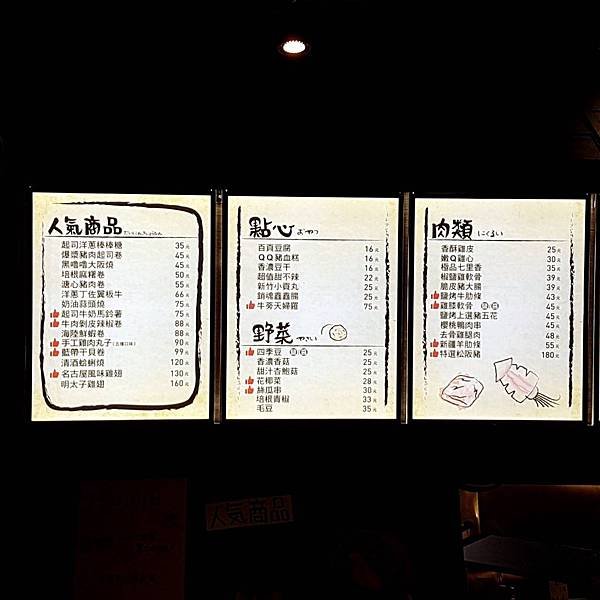 人氣商品
起司洋蔥棒棒糖 35元
爆漿豬肉起司卷 45元
黑嚕嚕大阪燒 45元
培根麻糬卷 50元
塘心豬肉卷 55元
洋蔥丁佐翼板牛 66元
奶油蒜頭燒 75元
起司牛奶馬鈴薯 75元
牛肉剝皮辣椒卷 88元
海陸鮮蝦卷 88元
手工雞肉丸子 90元
藍帶干貝卷 99元
清酒蛤蜊燒 120元
名古屋風味雞翅 130元
明太子雞翅 160元
點心 おやつ
百頁豆腐 16元
QQ豬血糕 16元
香濃豆干 16元
超值甜不辣 22元
新竹小貢丸 25元
銷魂鑫鑫腸 25元
牛旁天婦羅 75元
野菜 やさい
四季豆 25元
香濃香菇 25元
甜汁杏鮑菇 25元
花椰菜 28元
絲瓜串 30元
培根青椒 33元
毛豆 35元
肉類 にくるい
香酥雞皮 25元
嫩Q雞心 30元
極品七里香 35元
椒鹽雞軟骨 39元
脆皮豬大腸 39元
鹽烤牛肋條 43元
雞膝軟骨 45元
鹽烤上選豬五花 45元
櫻桃鴨肉串 45元
去骨雞腿肉 48元
新疆羊肋條 55元
特選松阪豬 180元
人氣商品